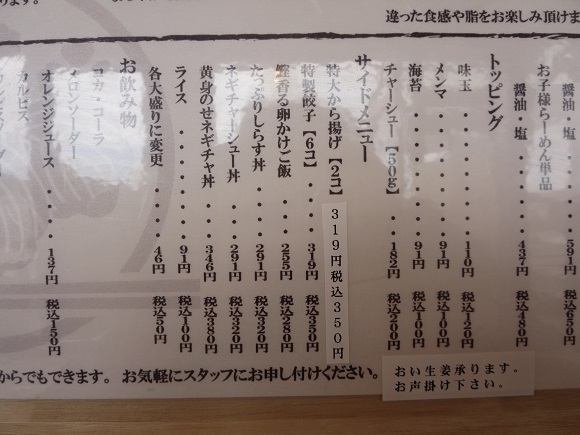 違った食感や脂をお楽しみ頂けま
醤油・塩・・・591円 税込650円
お子様らーめん単品
醤油・塩・・・437円 税込480円
トッピング
味玉・・・・・・110円 税込120円
メンマ・・・・・91円 税込100円
海苔・・・・・・91円 税込100円
チャーシュー【50g】・・182円 税込200円
サイドメニュー
特大から揚げ【2コ】319円税込350円
特製餃子【6コ】・・・319円 税込350円
鰹香る卵かけご飯・・・255円 税込280円
たっぷりしらす丼・・・291円 税込320円
ネギチャーシュー丼・・291円 税込320円
黄身のせネギチャ丼・・346円 税込380円
ライス・・・・・・91円 税込100円
各大盛りに変更・・・46円 税込50円
お飲み物
コカ・コーラ
メロンソーダー
オレンジジュース・・・137円 税込150円
カルピス
からでもできます。お気軽にスタッフにお申し付けください。
おい生姜承ります。
お声掛け下さい。